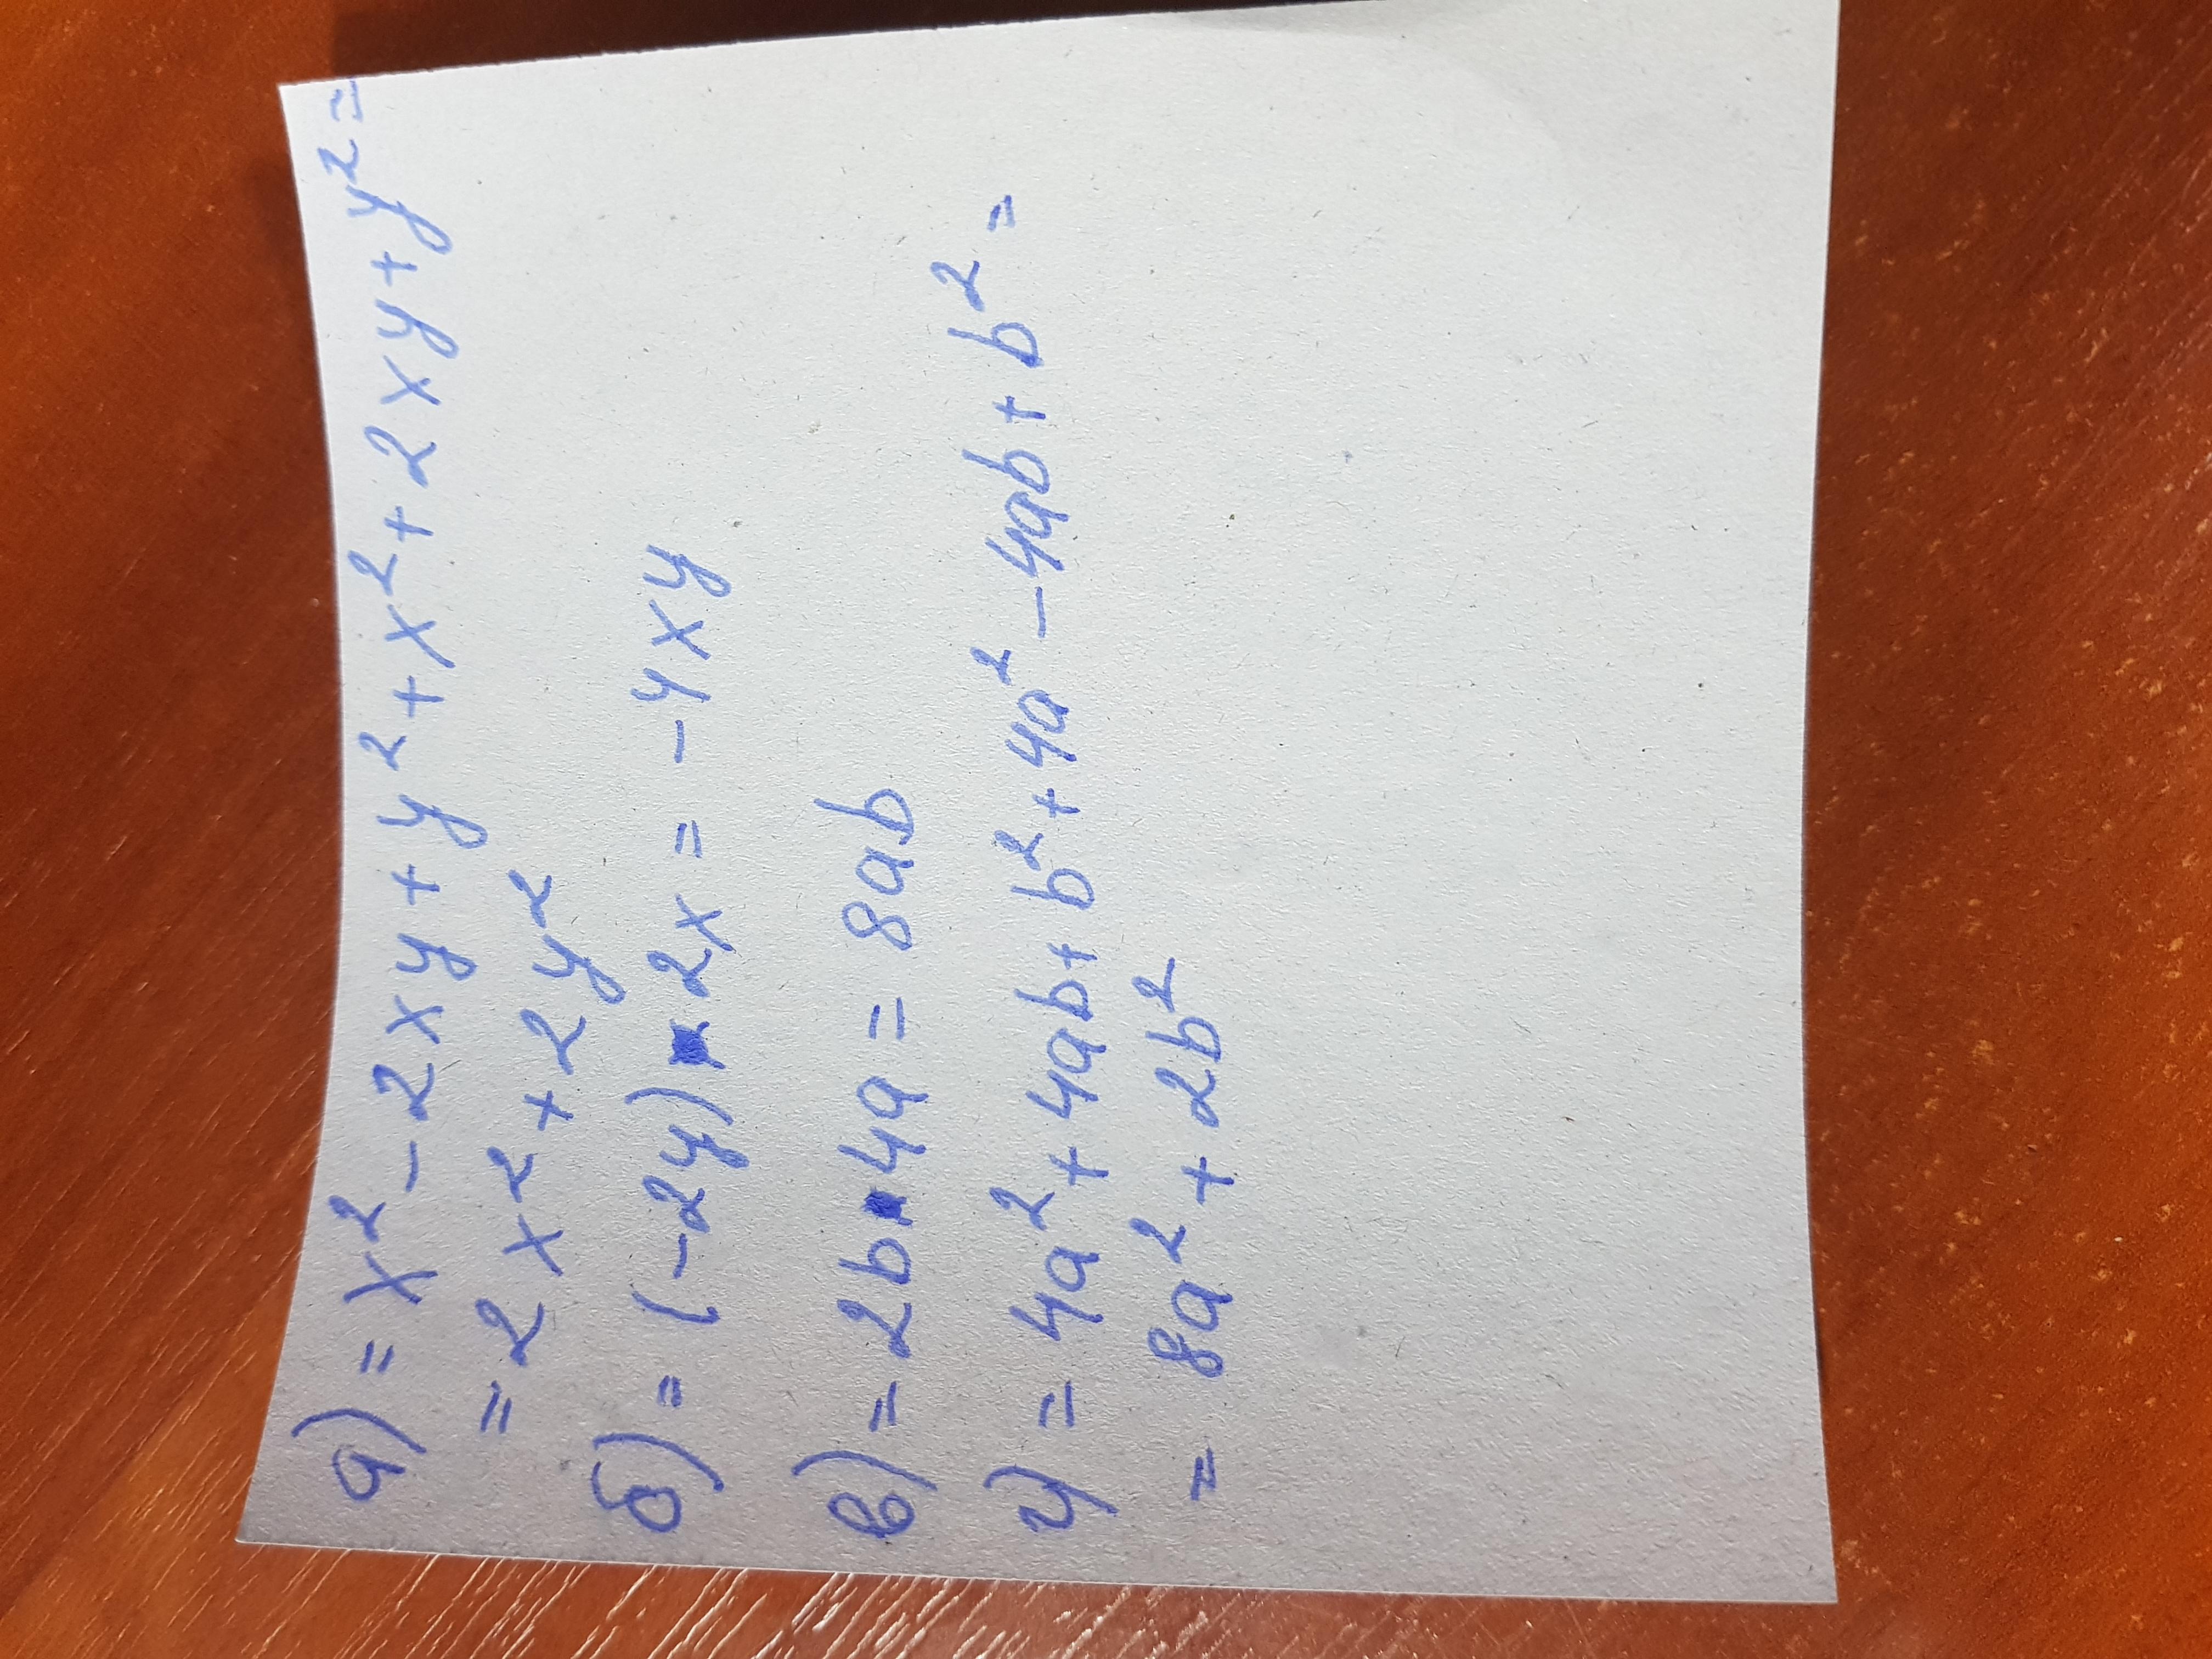 а) = x² - 2xy + y² + x² + 2xy + y² =
= 2x² + 2y²
б) = (-2y) · 2x = -4xy
в) = 2b · 4a = 8ab
г) = 4a² + 4ab + b² + 4a² - 4ab + b² =
= 8a² + 2b²